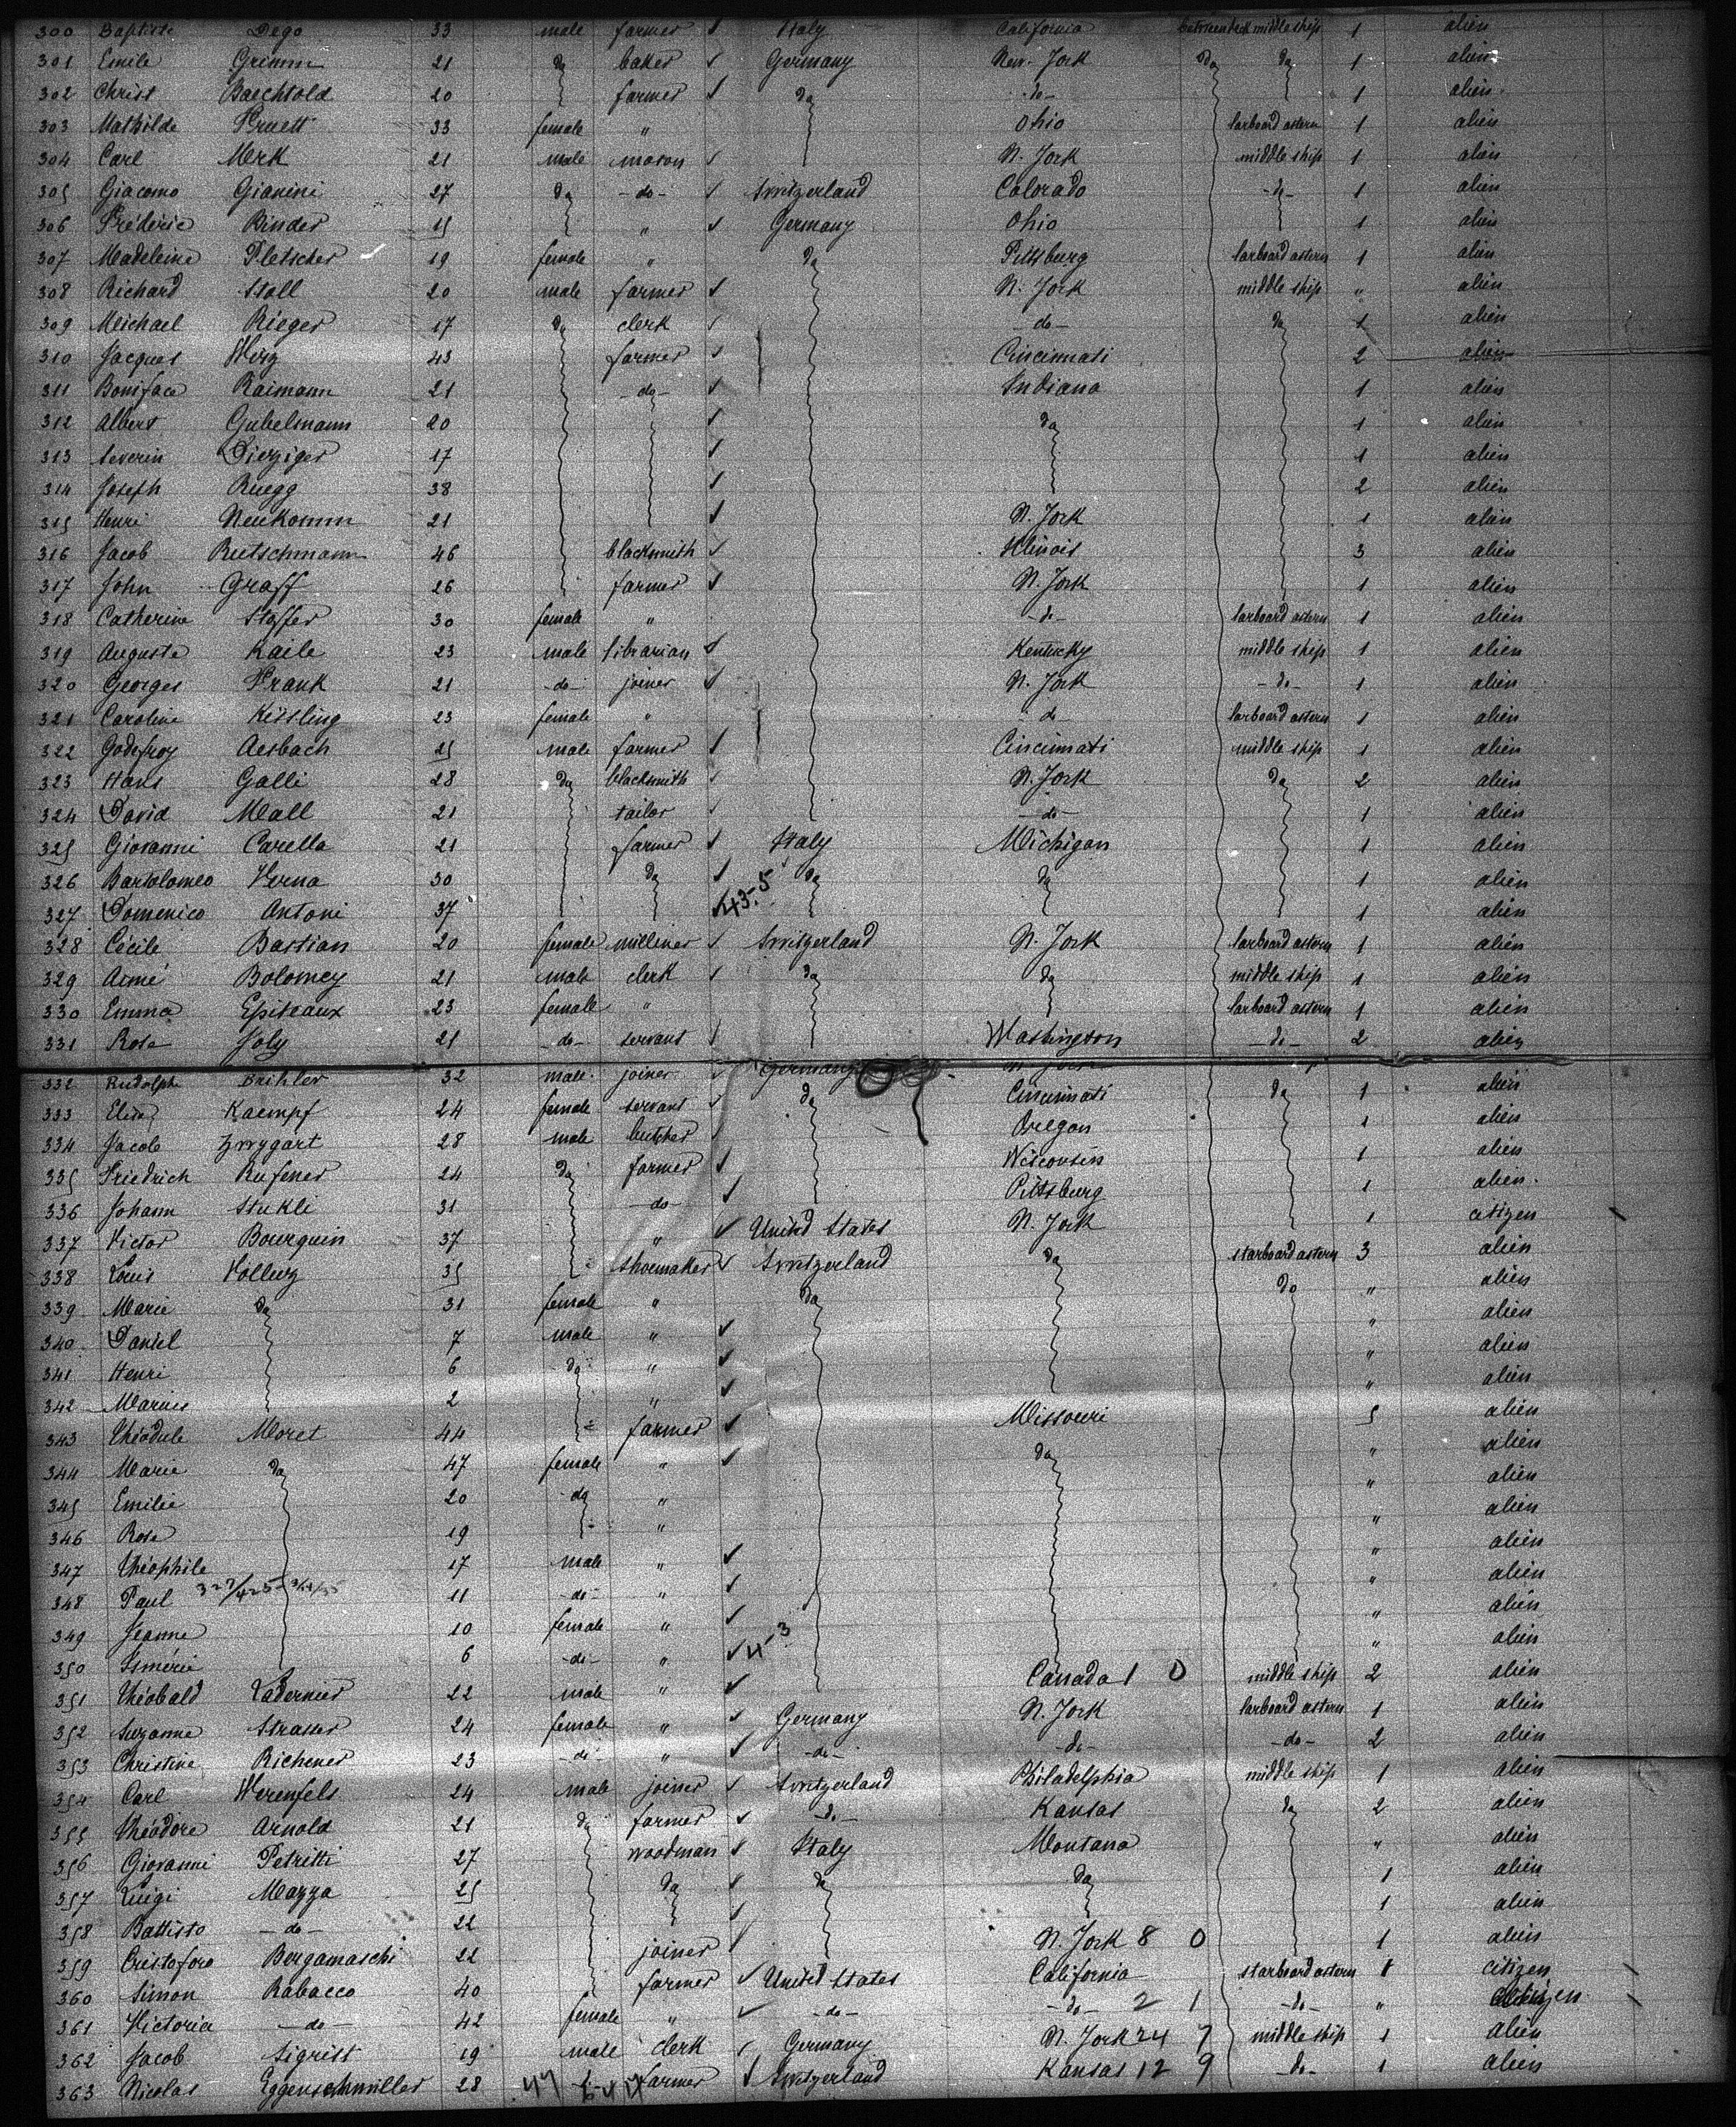 300 Baptiste Dego 33 male farmer ✓ Italy California betweendeck middle ship 1 alien
301 Emile Grimm 21 do baker ✓ Germany New-York do do 1 alien
302 Christ Baechtold 20 farmer ✓ do -do- 1 alien
303 Mathilde Pruett 33 female " Ohio larboard astern 1 alien
304 Carl Merk 21 male mason ✓ N. York middle ship 1 alien
305 Giacomo Gianini 27 do -do- ✓ Switzerland Colorado -do- 1 alien
306 Fréderic Binder 15 " ✓ Germany Ohio 1 alien
307 Madeleine Pletscher 19 female " do Pittsburg larboard astern 1 alien
308 Richard Stoll 20 male farmer ✓ N. York middle ship " alien
309 Michael Rieger 17 do clerk ✓ -do- do 1 alien
310 Jacques Hirz 43 farmer ✓ Cincinnati 2 alien
311 Boniface Raimann 21 -do- ✓ Indiana 1 alien
312 Albert Gubelmann 20 ✓ do 1 alien
313 Severin Dierziger 17 ✓ 1 alien
314 Joseph Ruegg 38 ✓ 2 alien
315 Henri Neukomm 21 ✓ N. York 1 alien
316 Jacob Rutschmann 46 blacksmith ✓ Illinois 3 alien
317 John Graff 26 farmer ✓ N. York 1 alien
318 Catherine Stoffer 30 female " -do- larboard astern 1 alien
319 Auguste Kaile 23 male librarian ✓ Kentucky middle ship 1 alien
320 Georges Frank 21 -do- joiner ✓ N. York -do- 1 alien
321 Caroline Kissling 23 female " do larboard astern 1 alien
322 Godefroy Aesbach 25 male farmer ✓ Cincinnati middle ship 1 alien
323 Hans Galli 28 do blacksmith ✓ N. York do 2 alien
324 David Mall 21 tailor ✓ -do- 1 alien
325 Giovanni Carella 21 farmer ✓ Italy Michigan 1 alien
326 Bartolomeo Verna 30 do ✓ do do 1 alien
327 Domenico Antoni 37 ✓ 43-5 1 alien
328 Cécile Bastian 20 female milliner ✓ Switzerland N. York larboard astern 1 alien
329 Aimé Bolomey 21 male clerk ✓ do do middle ship 1 alien
330 Emma Epiteaux 23 female " larboard astern 1 alien
331 Rose Joly 21 -do- servant ✓ Washington -do- 2 alien
332 Rudolph Brihler 32 male joiner ✓ Germany
333 Elise Kaempf 24 female servant ✓ do Cincinnati do 1 alien
334 Jacob Zwygart 28 male butcher Oregon 1 alien
335 Friedrich Rufener 24 do farmer ✓ Wisconsin 1 alien
336 Johann Stukli 31 -do- ✓ Pittsburg 1 alien
337 Victor Bourquin 37 " ✓ United States N. York 1 citizen
338 Louis Volluz 35 shoemaker ✓ Switzerland do starboard astern 3 alien
339 Marie do 31 female " do do " alien
340 Daniel 7 male " ✓ " alien
341 Henri 6 do " ✓ " alien
342 Marius 2 " ✓ " alien
343 Théodule Moret 44 farmer ✓ Missouri 5 alien
344 Marie do 47 female " ✓ do " alien
345 Emilie 20 do " " alien
346 Rose 19 " " alien
347 Théophile 17 male " ✓ " alien
348 Paul 11 -do- " ✓ " alien
349 Jeanne 10 female " ✓ " alien
350 Isménie 6 -do- " ✓ 4-3 " alien
351 Théobald Ladernier 22 male " ✓ Canada 1 0 middle ship 2 alien
352 Suzanne Strasser 24 female " ✓ Germany N. York larboard astern 1 alien
353 Christine Richener 23 -do- " ✓ -do- -do- -do- 2 alien
354 Carl Werenfels 24 male joiner ✓ Switzerland Philadelphia middle ship 1 alien
355 Théodore Arnold 21 do farmer ✓ -do- Kansas do 2 alien
356 Giovanni Petritti 27 woodman ✓ Italy Montana " alien
357 Luigi Mazza 25 do ✓ do do 1 alien
358 Battisto -do- 22 ✓ 1 alien
359 Cristoforo Bergamaschi 22 joiner ✓ N. York 8 0 1 alien
360 Simon Rabacco 40 farmer ✓ United States California starboard astern 1 citizen
361 Victoria -do- 42 female " ✓ -do- -do- 2 1 -do- " citizen
362 Jacob Sigrist 19 male clerk ✓ Germany N. York 24 7 middle ship 1 alien
363 Nicolas Eggenschwiller 28 farmer ✓ Switzerland Kansas 12 9 -do- 1 alien